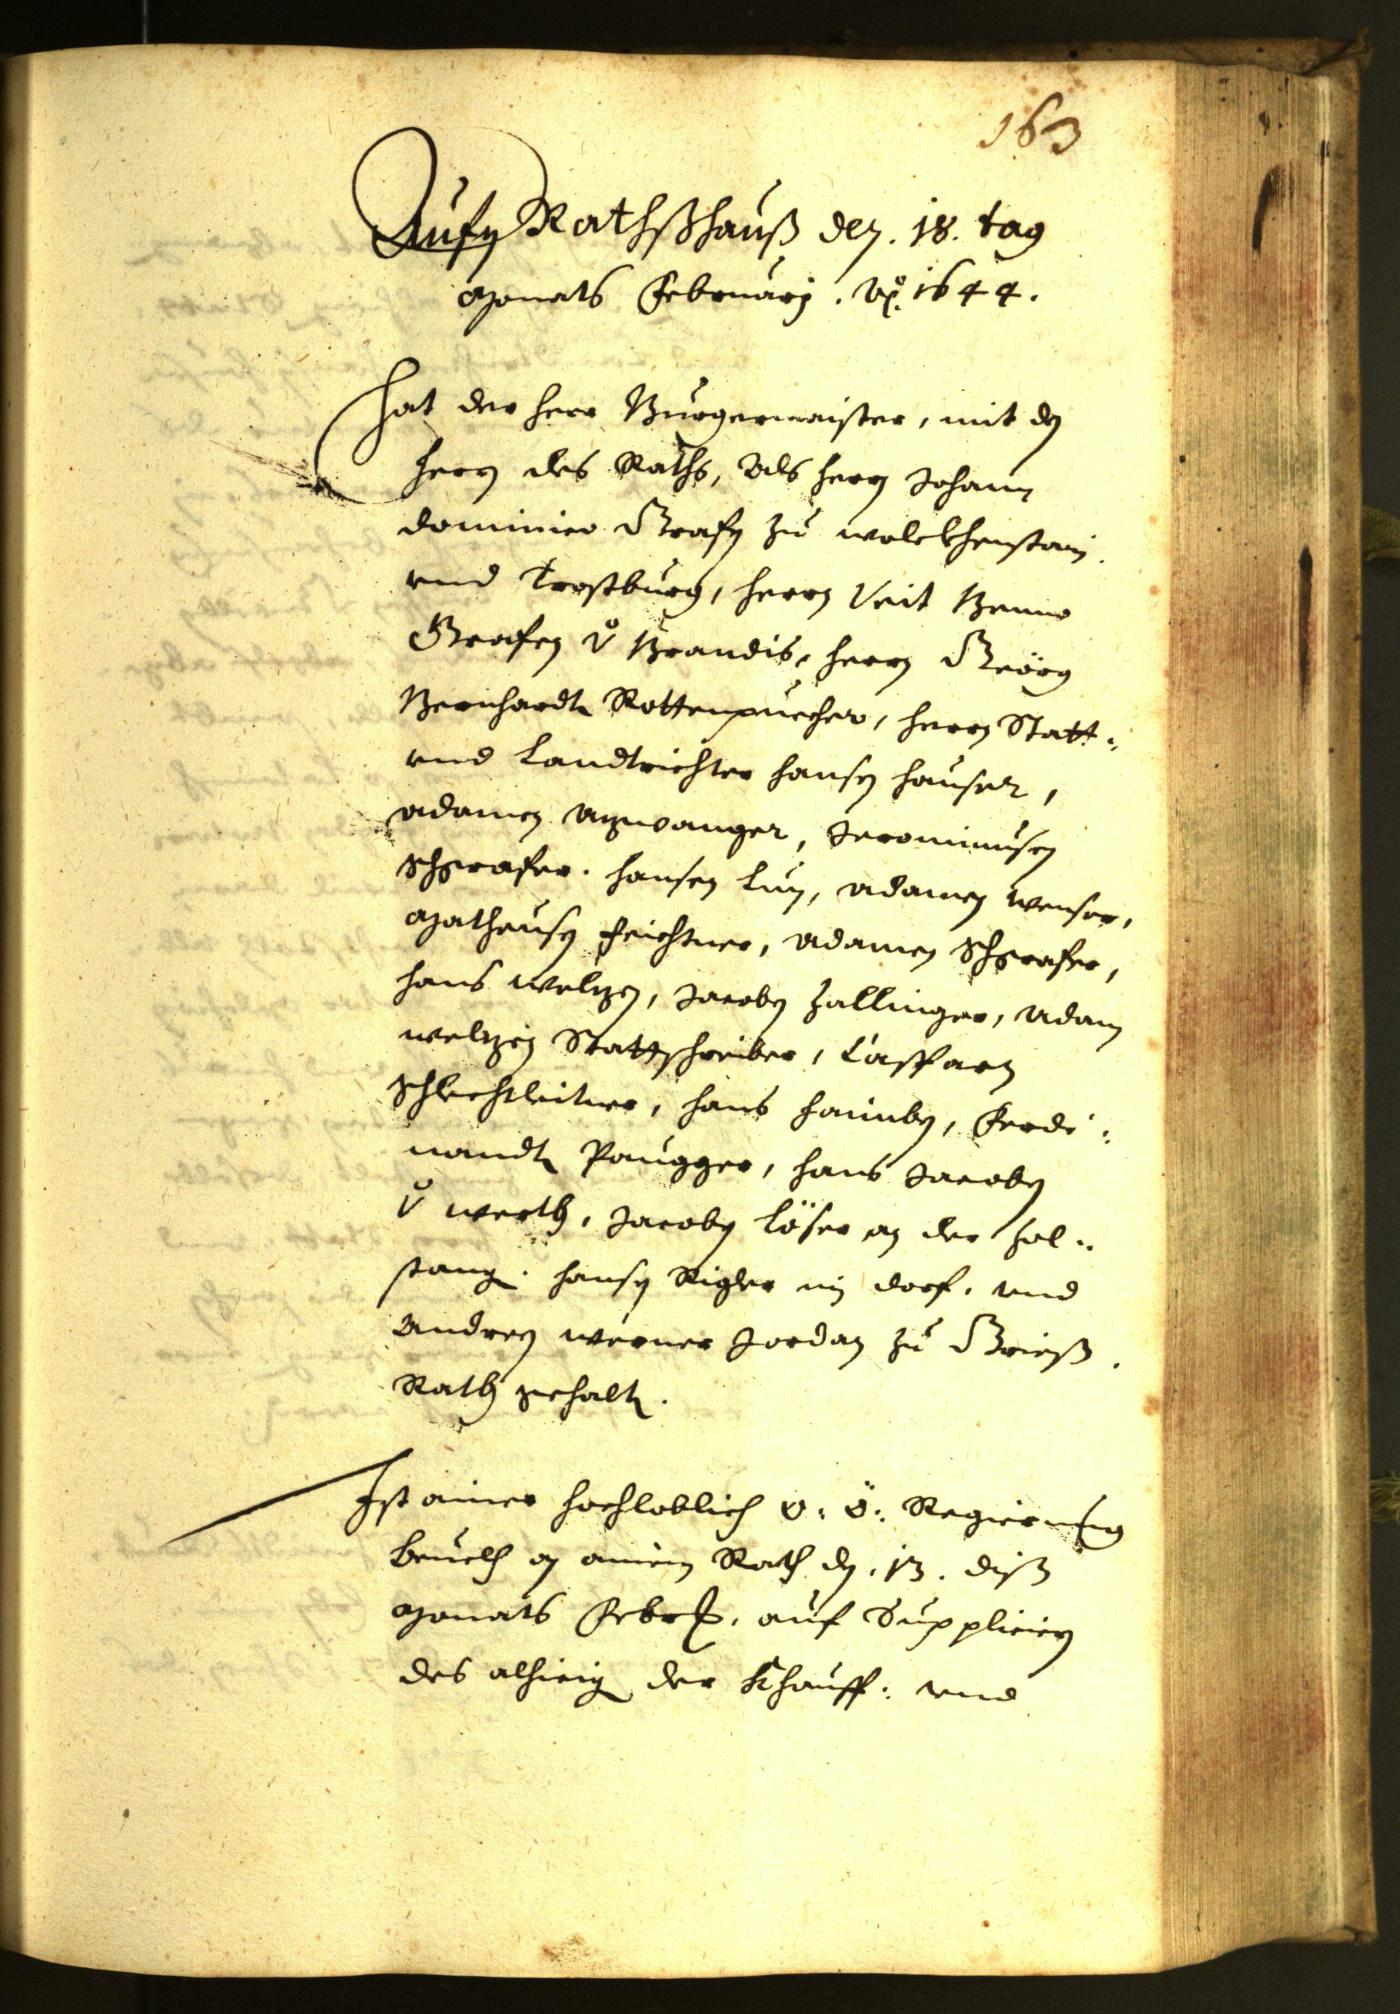 163
Aufn Rathßhauß den. 18. tag
Monats Februarij. Ao. 1644.
Hat der Herr Burgermaister, mit den
Herrn des Raths, Als Herrn Johann
Dominico Grafn zu Wolckhenstain
vnd Trostburg, Herrn Veit Benno
Grafen v Brandis, Herrn Geörg
Bernhardt Rottenpuecher, Herrn Statt:
vnd Landtrichter Hansen Hauser,
Adamen Aznwanger, Jeronimusen
Schgrafer. Hansen Lun, Adamen Wenser,
Matheusn Feichtner, Adamen Schgrafer,
Hans Weltzen, Jacobn Zallinger, Adam
Weltzen Stattschreiber, Casparn
Schlechtleitner, Hans Haimbn, Ferdi:
nandt Paugger, Hans Jacobn
v Werth, Jacobn Löser an der Zol:
stang. Hansn Rigler im Dorf. vnd
Andreen Werner Jordan zu Grieß.
Rath gehalten.
Ist ainer hochloblich o: ö: Regierung
Beuelch an ainem Rath dn. 13. diß
Monats Febr. auf Supplicirn
des alhieig der Khauff: vnd